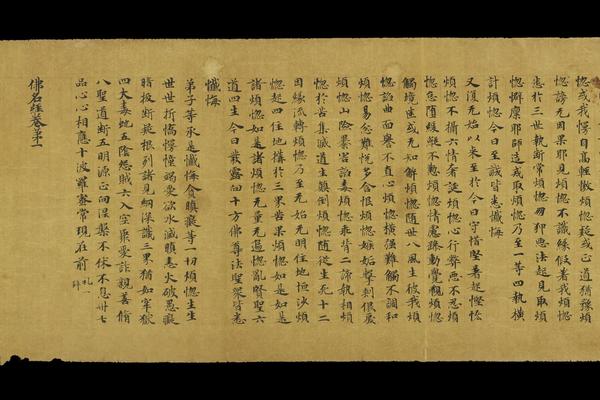 惚或我愣自高輕憿煩惚疑或正道猶豫煩
惚謗无因果耶見煩惚不識緣假著我煩惚
迷於三世執斷常煩惚朋狎惡法起見取煩
惚僻稟耶師造戒取煩惚乃至一等四執橫
計煩惚今日至誠皆悉懺悔
又復无始以來至於今日守惜堅著起慳悋
煩惚不攝六情奢誕煩惚心行弊惡不忍煩
惚怠墮緩縱不懃煩惚情慮躁動覺觀煩惚
觸境迷或无知解煩惚随世八風生彼我煩
惚諂曲面譽不直心煩惚橫强難觸不調和
煩惚易忿難悅多含恨煩惚嫉妬擊剌佷戾
煩惚凶險暴害諂毒煩惚乖背二諦執相煩
惚於苦集滅道生顛倒煩惚随從生死十二
因緣流轉煩惚乃至无始无明住地恒沙煩
惚起四住地構於三界苦果煩惚如是如是
諸煩惚如是諸煩惚无量无邊惚亂賢聖六
道四生今日發露向十方佛尊法聖衆皆悉
懺悔
弟子等承是懺悔貪瞋癡等一切煩惚生生
世世折憍愣憧竭愛欲水滅瞋恚火破愚癡
暗拔斷疑根列諸見網深識三界猶如牢獄
四大毒虵五陰怨賊六入空聚愛詐親善脩
八聖道斷五明源正向涅槃不休不息卅七
品心心相應十波羅蜜常現在前 礼一拜
佛名經卷第一